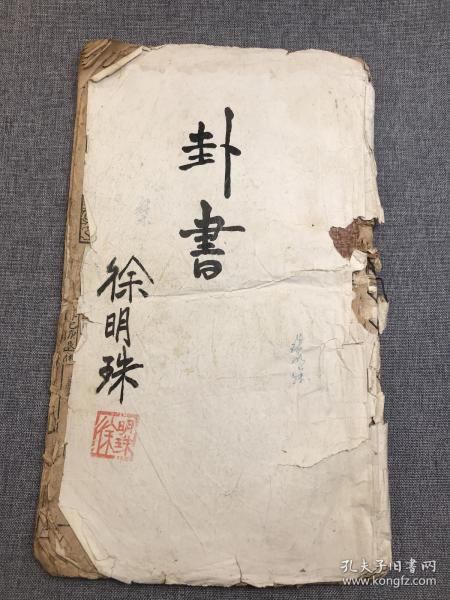 卦書
徐明珠
明珠
徐
孔夫子旧书网
www.kongfz.com